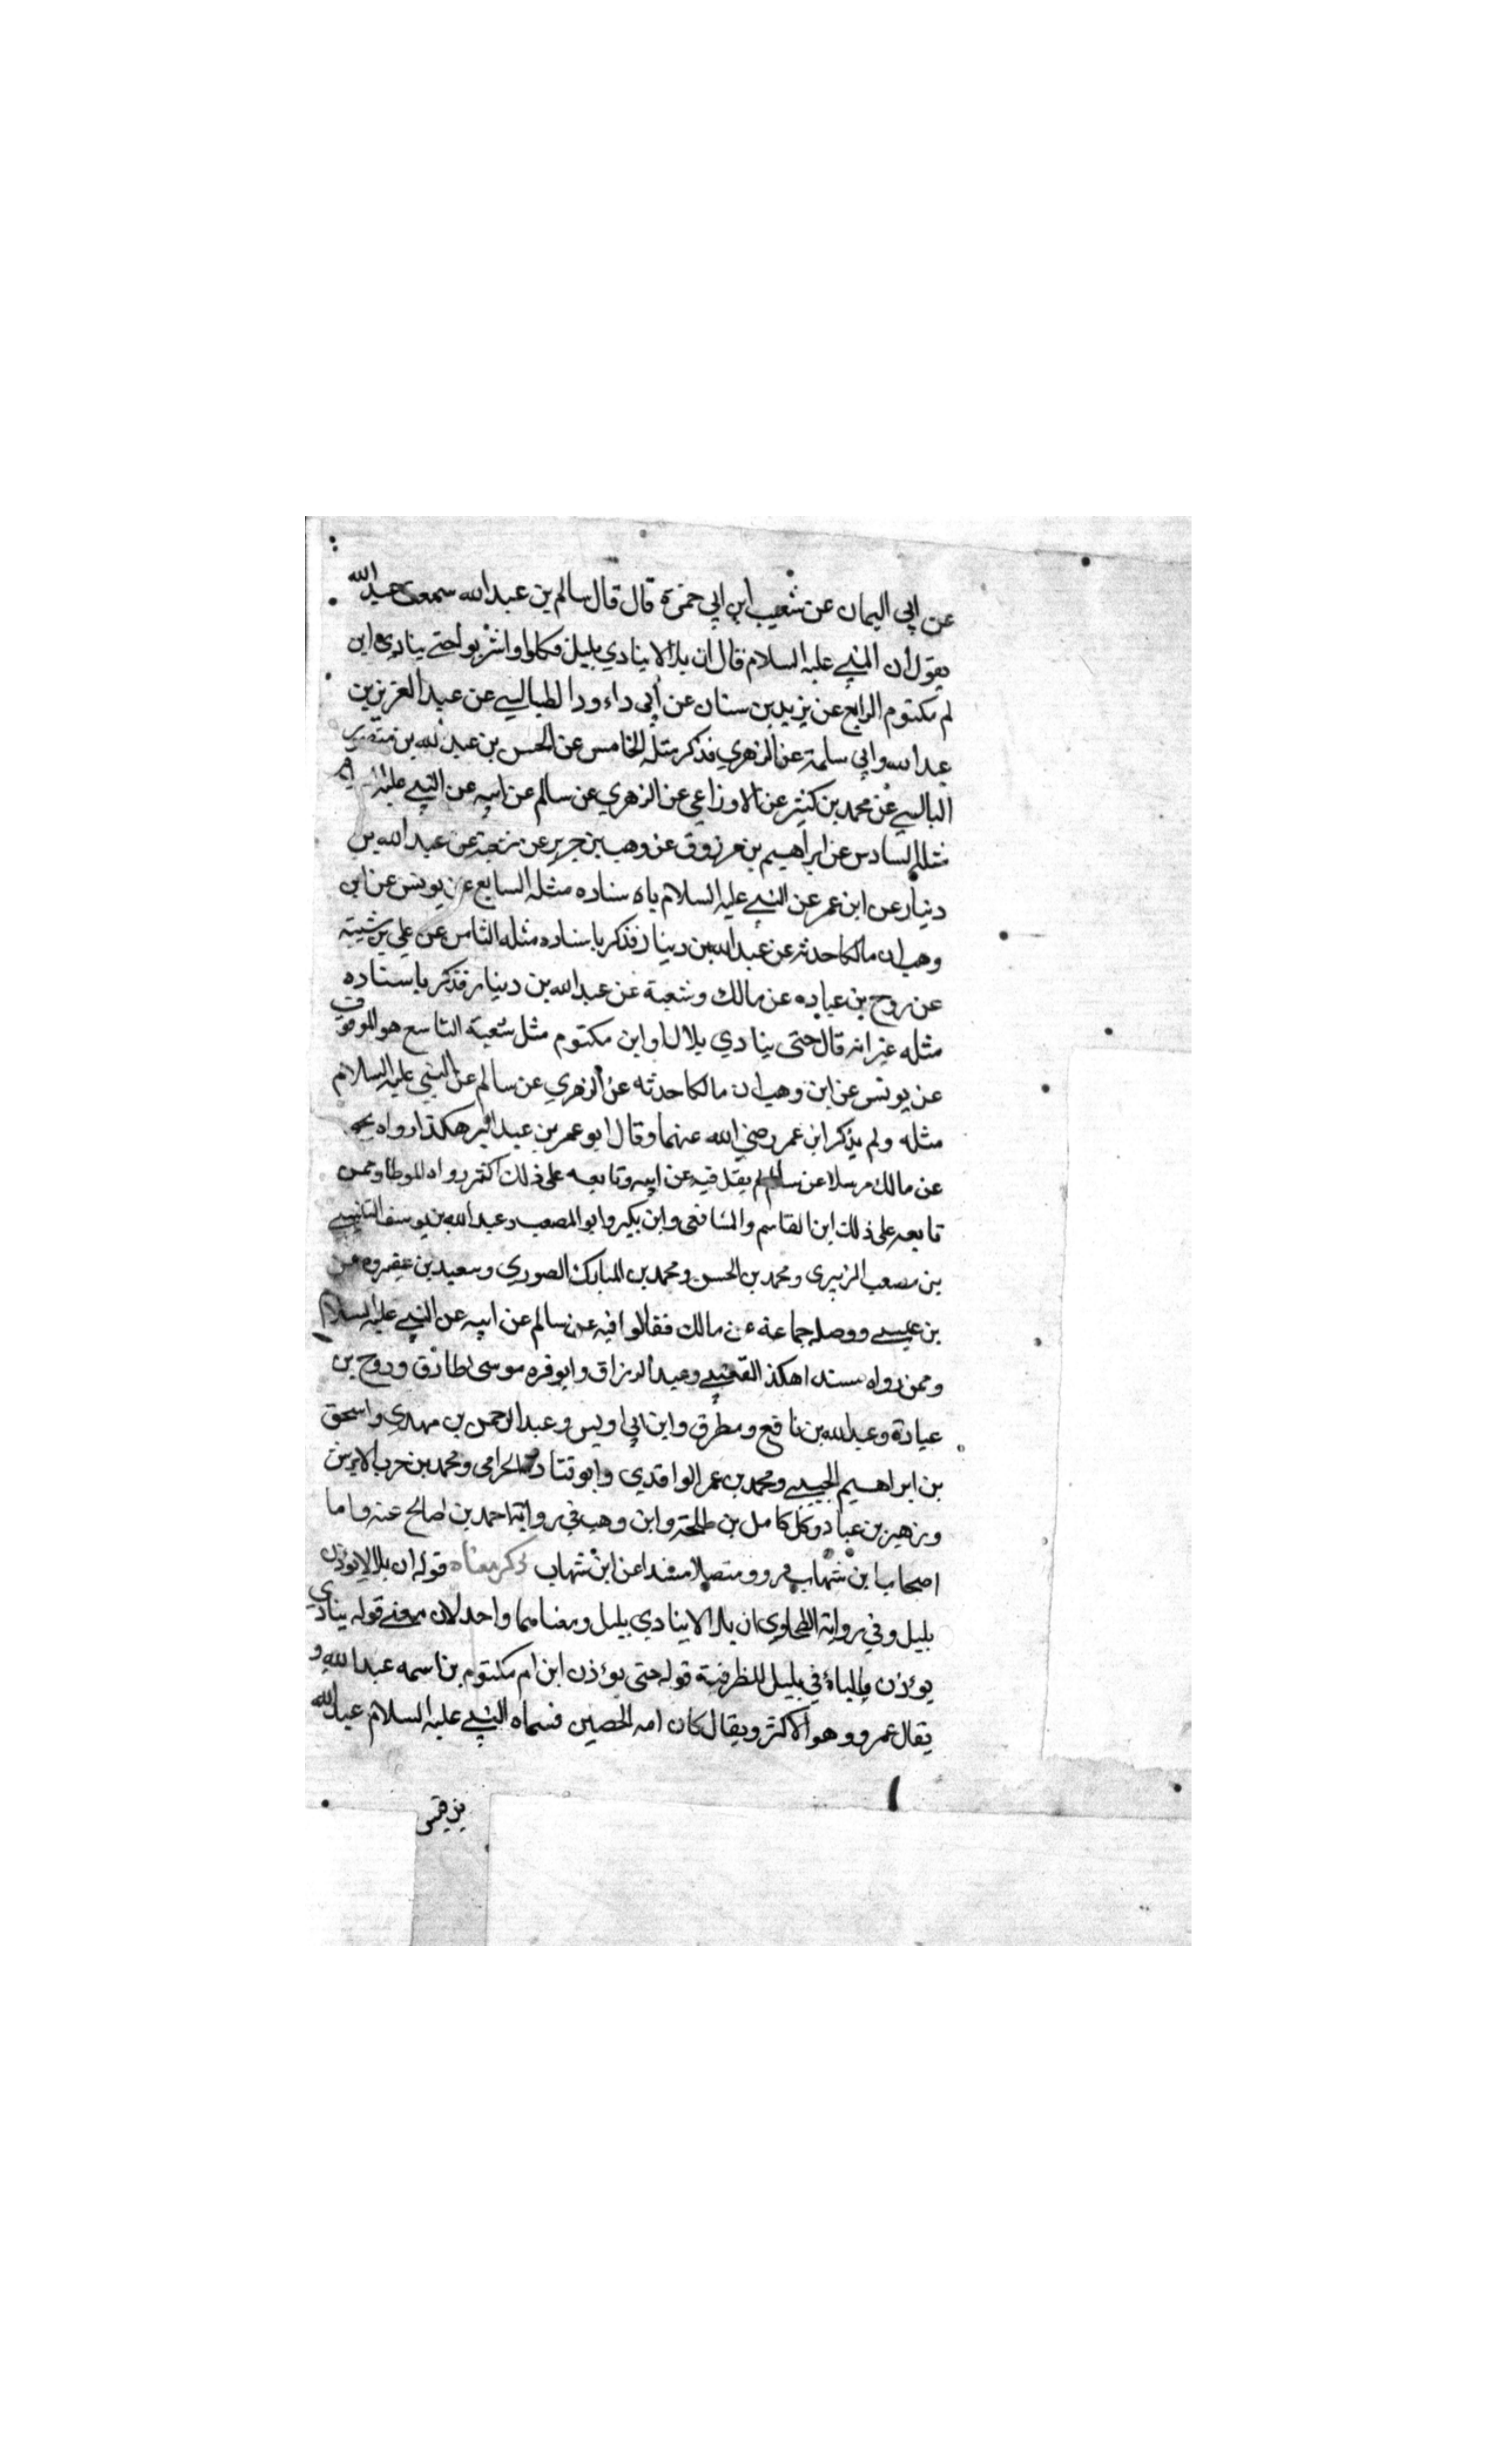 عن ابي اليمان عن شعيب ابن ابي حمزة قال قال سالم بن عبد الله سمعت عبد الله
يقول ان النبي عليه السلام قال ان بلالا ينادي بليل فكلوا واشربوا حتى ينادي ابن
ام مكتوم الرابع عن يزيد بن سنان عن أبي داود الطيالسي عن عبد العزيز بن
عبد الله وابي سلمة عن الزهري فذكر مثله الخامس عن الحسن بن عبد الله بن منصور
البالسي عن محمد بن كثير عن الاوزاعي عن الزهري عن سالم عن ابيه عن النبي عليه السلام
مثله السادس عن ابراهيم بن مرزوق عن وهب بن جرير عن شعبة عن عبد الله بن
دينار عن ابن عمر عن النبي عليه السلام باسناده مثله السابع عن يونس عن ابن
وهب ان مالكا حدثه عن عبد الله بن دينار فذكر باسناده مثله الثامن عن علي بن شيبة
عن روح بن عباده عن مالك وشعبة عن عبد الله بن دينار فذكر باسناده
مثله غير انه قال حتى ينادي بلال او ابن مكتوم مثل شعبة التاسع هو الموقوف
عن يونس عن ابن وهب ان مالكا حدثه عن الزهري عن سالم عن النبي عليه السلام
مثله ولم يذكر ابن عمر رضي الله عنهما وقال ابو عمر بن عبد البر هكذا رواه يحيى
عن مالك مرسلا عن سالم لم يقل فيه عن ابيه وتابعه على ذلك اكثر رواه الموطا وممن
تابعه على ذلك ابن القاسم والشافعى وابن بكير وابو المصعب وعبد الله بن يوسف التنيسي
بن مصعب الزبيرى ومحمد بن الحسن ومحمد بن المبارك الصوري وسعيد بن عفير ومعن
بن عيسى ووصله جماعة عن مالك فقالوا فيه عن سالم عن ابيه عن النبي عليه السلام
وممن رواه مسندا هكذا القعنبي وعبد الرزاق وابو قره موسى طارق وروح بن
عبادة وعبد الله بن نافع ومطرف وابن ابي اويس وعبد الرحمن بن مهدي واسحق
بن ابراهيم الحبيبي ومحمد بن عمر الواقدي وابو قتادة الحرامى ومحمد بن حرب الابرش
وزهير بن عباد وكل كامل بن طلحة وابن وهب في رواية احمد بن صالح عنه واما
اصحاب ابن شهاب فرووه متصلا مسندا عن ابن شهاب ذكر معناه قوله ان بلالا يؤذن
بليل وفي رواية الطحاوي ان بلالا ينادي بليل ومعناهما واحد لان معنى قوله ينادي
يؤذن والباء في بليل للظرفية قوله حتى يؤذن ابن ام مكتوم بن اسمه عبد الله و
يقال عمرو وهو الاكثر ويقال كان امه الحصين فسماه النبي عليه السلام عبد الله
بن قيس